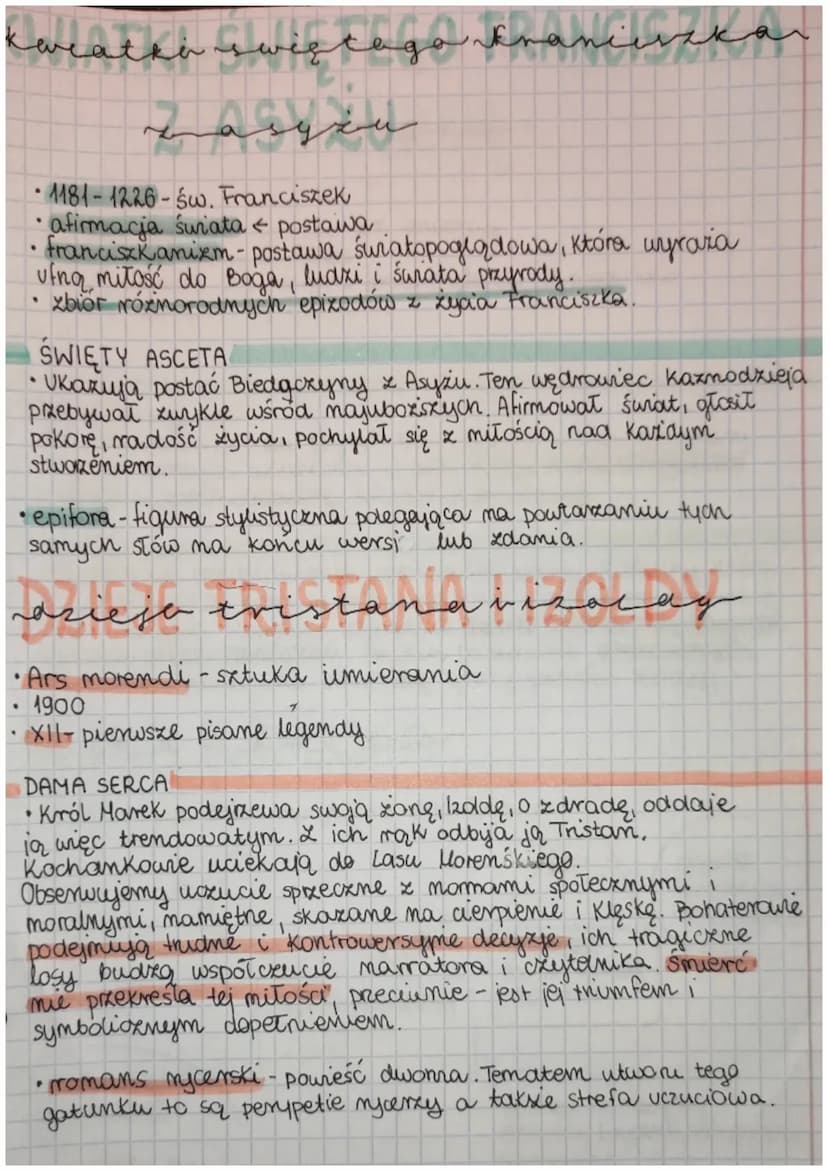 Kwiatki świętego Franciszka
z asyżu
• 1181-1226 - św. Franciszek
• afirmacja świata ← postawa
• franciszkanizm - postawa światopoglądowa, która wyraża
ufną miłość do Boga, ludzi i świata przyrody.
• zbiór różnorodnych epizodów z życia Franciszka.
ŚWIĘTY ASCETA
• Ukazują postać Biedaczyny z Asyżu. Ten wędrowiec kaznodzieja
przebywał zwykle wśród najuboższych. Afirmował świat, głosił
pokorę, radość życia, pochylał się z miłością nad każdym
stworzeniem.
• epifora - figura stylistyczna polegająca na powtarzaniu tych
samych słów na końcu wersi lub zdania.
dzieje tristana i izoldy
• Ars morendi - sztuka umierania
• 1900
• XII - pierwsze pisane legendy
DAMA SERCA
• Król Marek podejrzewa swoją żonę, Izoldę, o zdradę, oddaje
ją więc trendowatym. Z ich rąk odbija ją Tristan.
Kochankowie uciekają do Lasu Moreńskiego.
Obserwujemy uczucie sprzeczne z normami społecznymi i
moralnymi, namiętne, skazane na cierpienie i klęskę. Bohaterowie
podejmują trudne i kontrowersyjne decyzje, ich tragiczne
losy budzą współczucie narratora i czytelnika. Śmierć
nie przekreśla tej miłości, przeciwnie - jest jej triumfem i
symbolicznym dopełnieniem.
• romans rycerski - powieść dworna. Tematem utworu tego
gatunku to są perypetie rycerzy a także strefa uczuciowa.